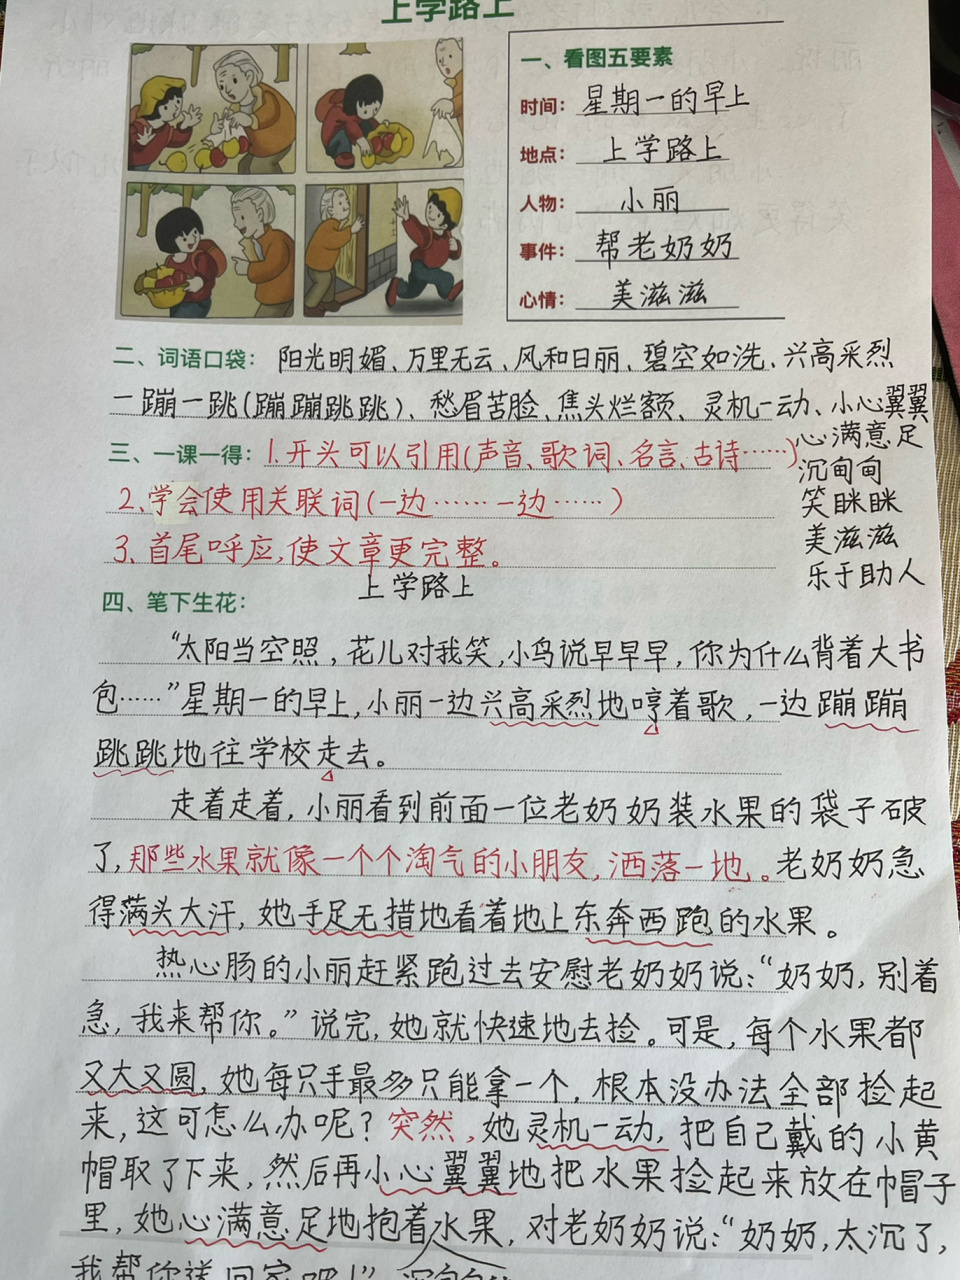 上学路上
一、看图五要素
时间：星期一的早上
地点：上学路上
人物：小丽
事件：帮老奶奶
心情：美滋滋
二、词语口袋：阳光明媚、万里无云、风和日丽、碧空如洗、兴高采烈
一蹦一跳(蹦蹦跳跳)、愁眉苦脸、焦头烂额、灵机一动、小心翼翼
心满意足
沉甸甸
笑眯眯
美滋滋
乐于助人
三、一课一得：1.开头可以引用(声音、歌词、名言、古诗……)
2、学会使用关联词(一边…… 一边……)
3、首尾呼应,使文章更完整。
上学路上
四、笔下生花：
“太阳当空照，花儿对我笑,小鸟说早早早，你为什么背着大书
包……”星期一的早上,小丽一边兴高采烈地哼着歌，一边蹦蹦
跳跳地往学校走去。
走着走着，小丽看到前面一位老奶奶装水果的袋子破
了,那些水果就像一个个淘气的小朋友,洒落一地。老奶奶急
得满头大汗，她手足无措地看着地上东奔西跑的水果。
热心肠的小丽赶紧跑过去安慰老奶奶说：“奶奶，别着
急，我来帮你。”说完，她就快速地去捡。可是，每个水果都
又大又圆，她每只手最多只能拿一个，根本没办法全部捡起
来，这可怎么办呢？突然，她灵机一动，把自己戴的小黄
帽取了下来，然后再小心翼翼地把水果捡起来放在帽子
里，她心满意足地抱着水果，对老奶奶说：“奶奶，太沉了，
我帮你送回家吧！”